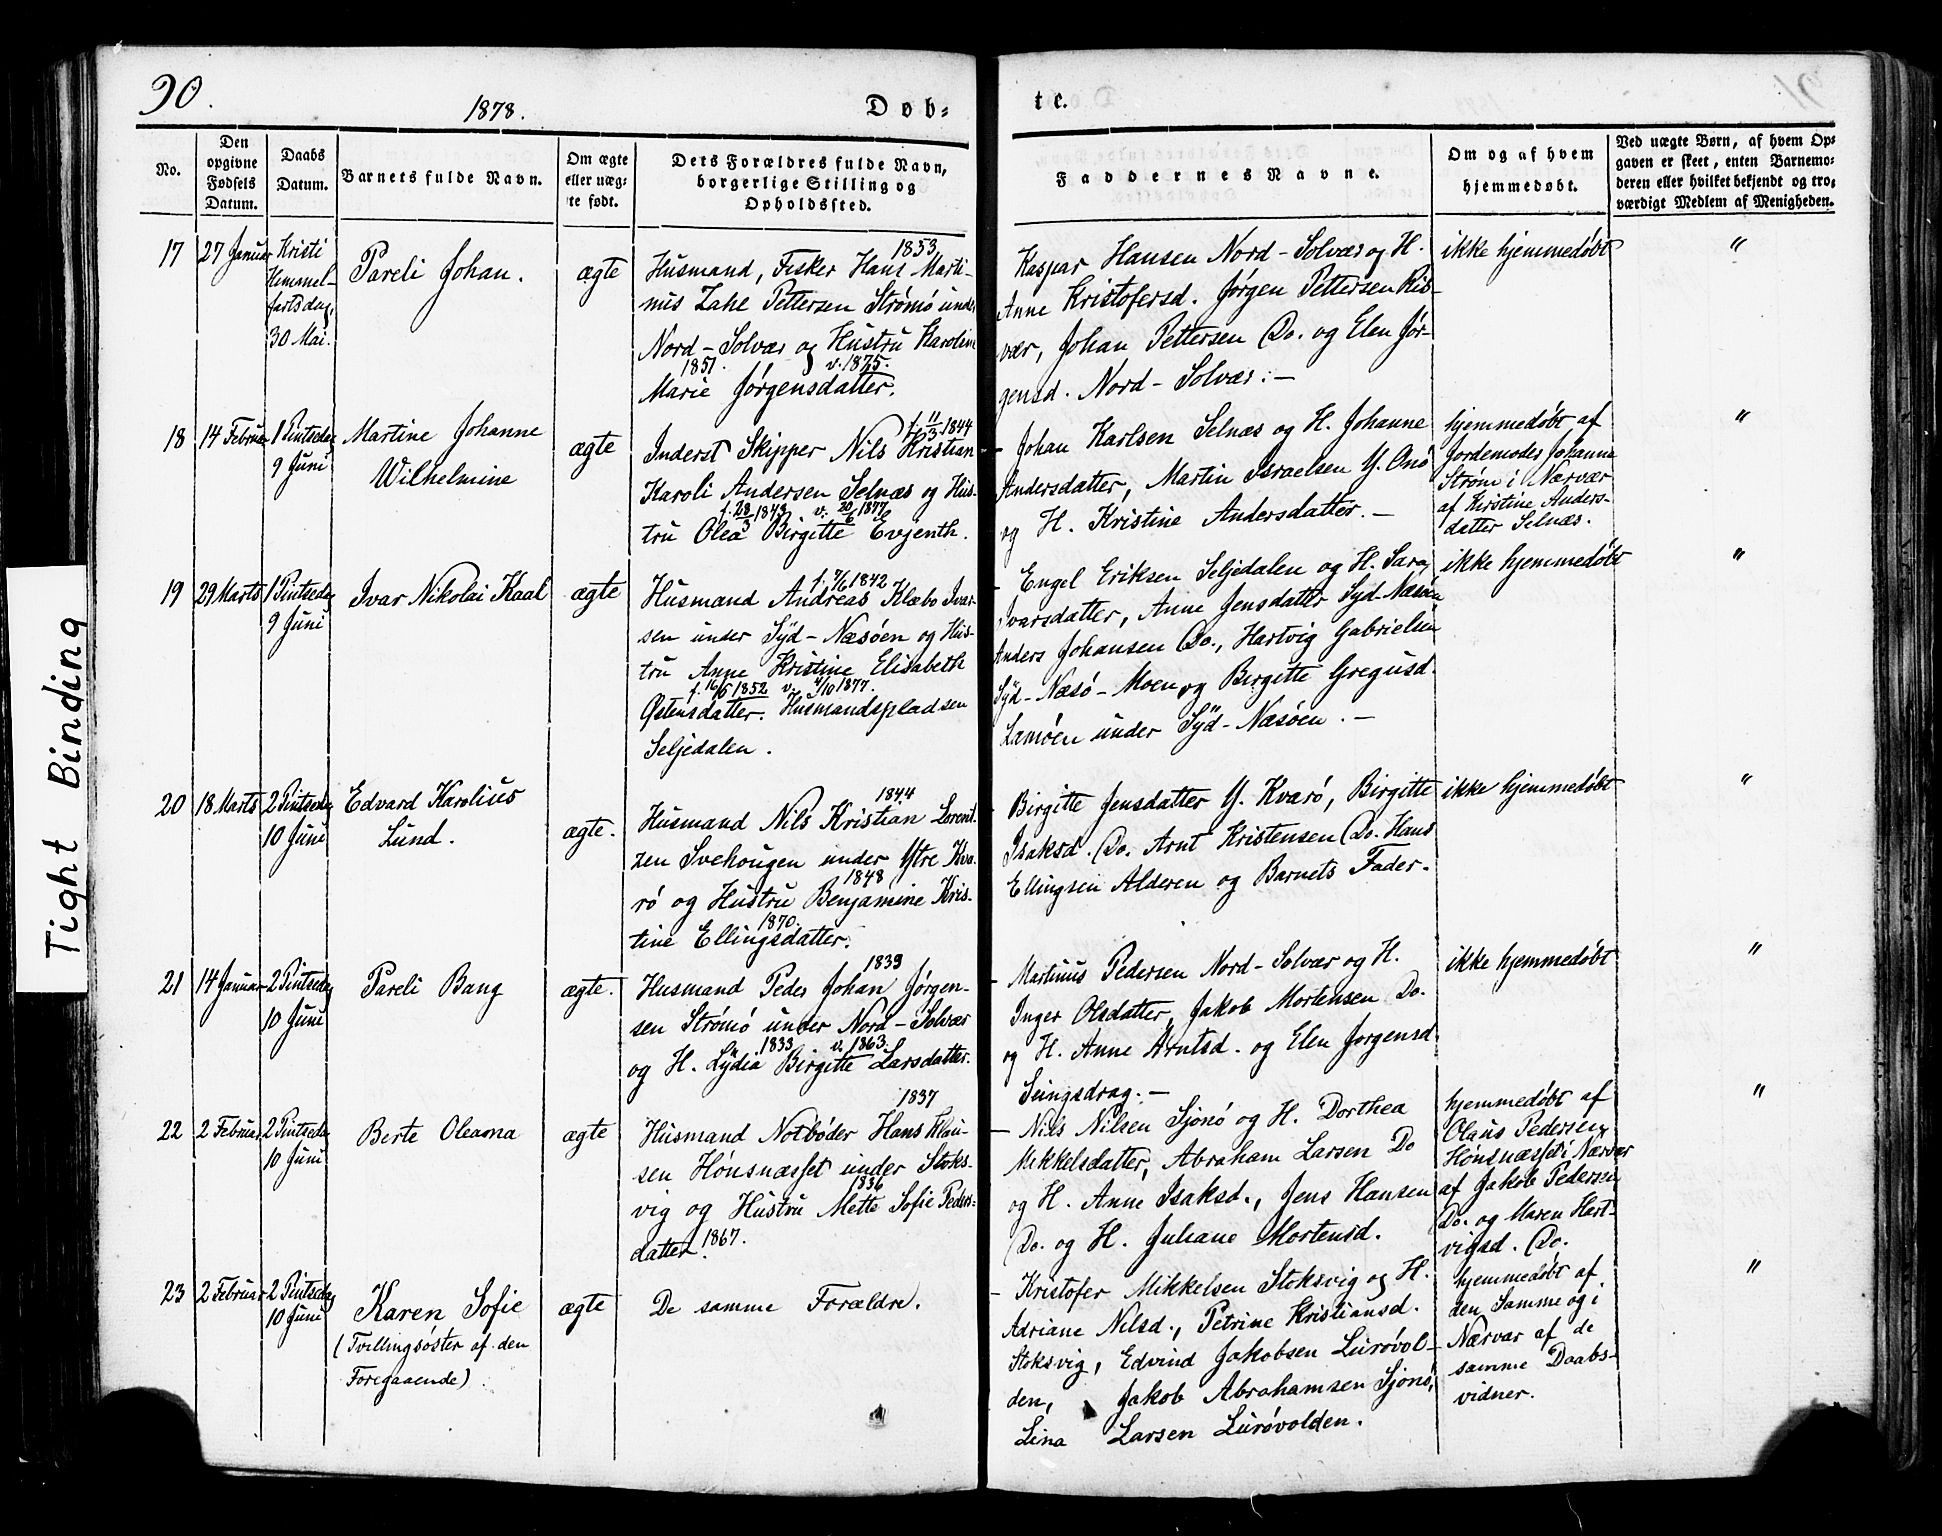 90.
1878.
Døb-
te.
No.
Den opgivne Fødsels Datum.
Daabs Datum.
Barnets fulde Navn.
Om ægte eller uæg-te født.
Dets Forældres fulde Navn, borgerlige Stilling og Opholdssted.
Faddernes Navne.
Om og af hvem hjemmedøbt.
Ved uægte Børn, af hvem Op-
gaven er skeet, enten Barnemo-
deren eller hvilket bekjendt og tro-
værdigt Medlem af Menigheden.
17
27 Januar
Kristi
Himmel-
fartsdag,
30 Mai.
Pareli Johan.
ægte
1853
Husmand, Fisker Hans Marti-
nus Zahl Pettersen Strømø under
Nord-Solvær og Hustru Karoline
1851. v. 1875.
Marie Jørgensdatter.
Kaspar Hansen Nord-Solvær og H.
Anne Kristofersd. Jørgen Pettersen Ris-
vær, Johan Pettersen Do. og Elen Jør-
gensd. Nord-Solvær. —
ikke hjemmedøbt
"
18
14 Februar
1 Pintsedag
9 Juni
Martine Johanne
Wilhelmine
ægte
f. 11/3 1844
Inderst Skipper Nils Kristian
Karoli Andersen Selnæs og Hus-
f. 28/3 1843 v. 20/6 1877
tru Olea Birgitte Evjenth.
- Johan Karlsen Selnæs og H. Johanne
Andersdatter, Martin Israelsen Y. Onø
og H. Kristine Andersdatter. —
hjemmedøbt af
Jordemoder Johanna
Strøm i Nærvær
af Kirstine Anders-
datter Selnæs.
"
19
29 Marts
1 Pintsedag
9 Juni
Ivar Nikolai Kaal
ægte
f. 7/6 1842
Husmand Andreas Klæbo Ivar-
sen under Syd-Næsøen og Hus-
tru Anne Kristine Elisabeth
f. 16/5 1852 v. 4/10 1877.
Østensdatter. Husmandspladsen
Seljedalen.
- Engel Eriksen Seljedalen og H. Sara
Ivarsdatter, Anne Jensdatter Syd-Næsøen
Anders Johansen Do., Hartvig Gabrielsen
Syd-Næsø-Moen og Birgitte Gregusd.
Lamøen under Syd-Næsøen. —
ikke hjemmedøbt
"
20
18 Marts
2 Pintsedag
10 Juni
Edvard Karolius
Lund.
ægte.
1844
Husmand Nils Kristian Lorent-
zen Svehougen under Ytre Kva-
1848
rø og Hustru Benjamine Kris-
1870.
tine Ellingsdatter.
- Birgitte Jensdatter Y. Kvarø, Birgitte
Isaksd. Do. Arnt Kristensen Do. Hans
Ellingsen Alderen og Barnets Fader.
ikke hjemmedøbt
"
21
14 Januar
2 Pintsedag
10 Juni
Pareli Bang
ægte.
1839
Husmand Peder Johan Jørgen-
sen Strømø under Nord-Solvær
1833 v. 1863.
og H. Lydia Birgitte Larsdatter.
- Martinus Pedersen Nord-Solvær og H.
Inger Olsdatter, Jakob Mortensen Do.
og H. Anne Arntsd. og Elen Jørgensd.
Seingsdrag. —
ikke hjemmedøbt
"
22
2 Februar
2 Pintsedag
10 Juni
Berte Oleana
ægte
1837
Husmand Notbøder Hans Klau-
sen Hønsnæsset under Stoks-
1836
vig og Hustru Mette Sofie Peders-
datter. 1867.
- Nils Nilsen Sjonø og H. Dorthea
Mikkelsdatter, Abraham Larsen Do
og H. Anne Isaksd., Jens Hansen
Do. og H. Juliane Mortensd.
hjemmedøbt af
Olaus Pedersen
Hønsnæsset i Nærvær
af Jakob Pedersen
Do. og Maren Hart-
vigsd. Do.
"
23
2 Februar
2 Pintsedag
10 Juni
Karen Sofie
(Tvillingsøster af den
Foregaaende)
ægte
De samme Forældre.
- Kristofer Mikkelsen Stoksvig og H.
Adriane Nilsd., Petrine Kristiansd.
Stoksvig, Edvind Jakobsen Lurøvol-
den, Jakob Abrahamsen Sjonø,
Lina Larsen Lurøvolden.
hjemmedøbt af
den Samme og i
Nærvær af de
samme Daabs-
vidner.
"
Tight Binding